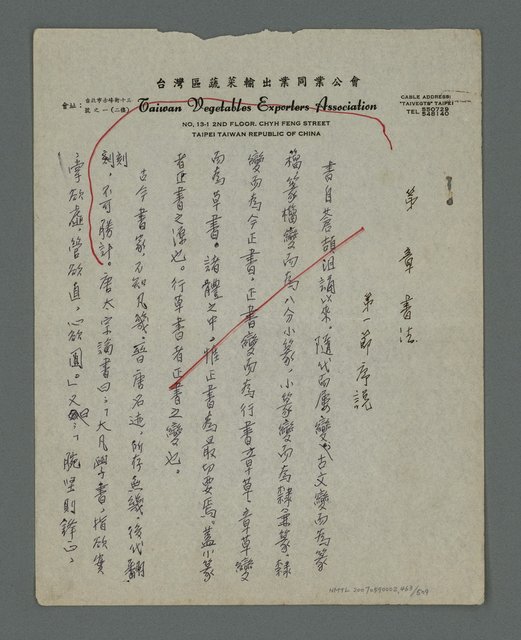 台灣區蔬菜輸出業同業公會
會址：台北市赤峰街十三號之一(二樓)
Taiwan Vegetables Exporters Association
NO, 13-1 2ND FLOOR. CHYH FENG STREET
TAIPEI TAIWAN REPUBLIC OF CHINA
CABLE ADDRESS:
"TAIVEGTS" TAIPEI
TEL 550729
548140
第　章 書法
第一節 序說
書自蒼頡沮誦以來，隨代而屢變，古文變而為篆
籀，篆籀變而為八分小篆，小篆變而為隸，隸
變而為今正書，正書變而為行書章草，章草變
而為草書。諸體之中，惟正書為最切要焉。蓋小篆
者正書之源也。行草書者正書之變也。
古今書家，不知凡幾，晉唐名迹，所存無幾，後代翻
刻
刻，不可勝計。唐太宗論書曰：「大凡學書，指欲實
掌欲虛，管欲直，心欲圓。」又曰：「腕竪則鋒正，
NMTL 20070590002,463/509